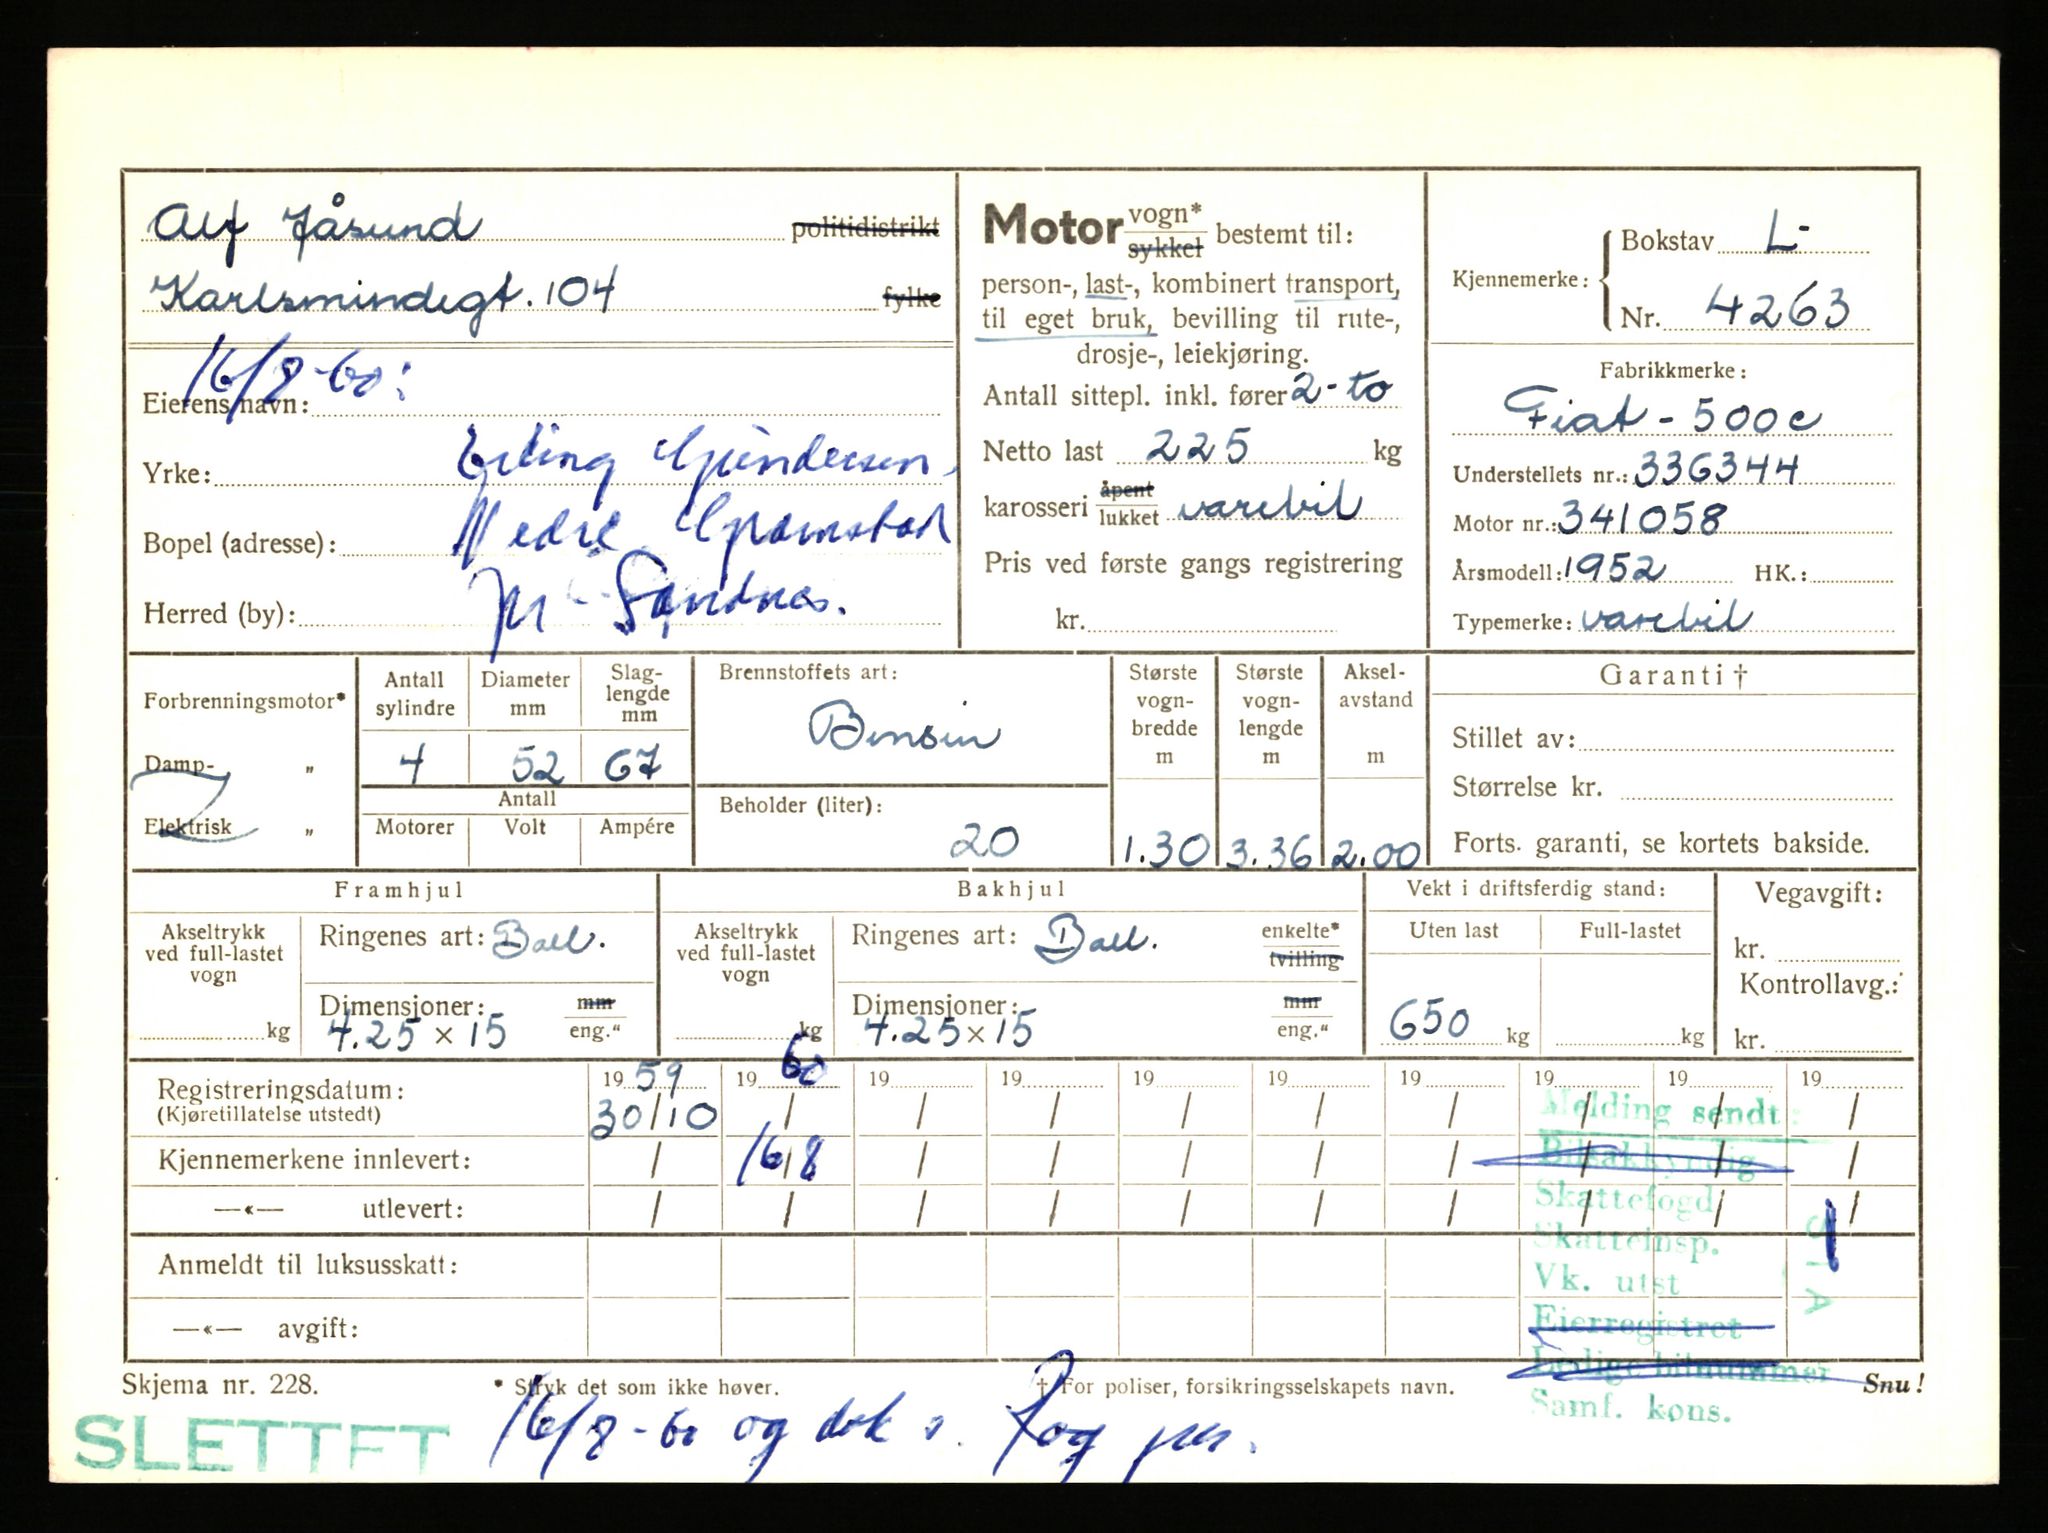 Alf Jåsund politidistrikt
Karlsmindegt. 104 fylke
16/8-60:
Eierens navn:
Erling Gundersen,
Yrke:
Nedre Gramstad
Bopel (adresse):
pr. Sandnes.
Herred (by):
Motor vogn* sykkel bestemt til:
person-, last-, kombinert transport,
til eget bruk, bevilling til rute-,
drosje-, leiekjøring.
Antall sittepl. inkl. fører 2-to
Netto last 225 kg
karosseri åpent lukket varebil
Pris ved første gangs registrering
kr.
Kjennemerke: Bokstav L-
Nr. 4263
Fabrikkmerke:
Fiat - 500c
Understellets nr.: 336344
Motor nr.: 341058
Årsmodell: 1952 HK.:
Typemerke: varebil
Forbrenningsmotor*
Damp- „
Elektrisk „
Antall sylindre
4
Diameter mm
52
Slag-
lengde
mm
67
Antall
Motorer Volt Ampére
Brennstoffets art:
Bensin
Beholder (liter):
20
Største
vogn-
bredde
m
1.30
Største
vogn-
lengde
m
3.36
Aksel-
avstand
m
2.00
Garanti †
Stillet av:
Størrelse kr.
Forts. garanti, se kortets bakside.
Framhjul
Akseltrykk
ved full-lastet
vogn
kg
Ringenes art: Ball.
Dimensjoner: mm
4.25 x 15 eng."
Bakhjul
Akseltrykk
ved full-lastet
vogn
kg
Ringenes art: Ball. enkelte*
tvilling
Dimensjoner: mm
4.25 x 15 eng."
Vekt i driftsferdig stand:
Uten last Full-lastet
650 kg kg
Vegavgift:
kr.
Kontrollavg.:
kr.
Registreringsdatum: 19 59 19 60 19 19 19 19 19 19 19 19
(Kjøretillatelse utstedt) 30/10 / / / / / / / / /
Kjennemerkene innlevert: / 16/8 / / / / / / / /
—«— utlevert: / / / / / / / / / /
Anmeldt til luksusskatt:
—«— avgift:
Melding sendt:
Bilsakkyndig
Skattefogd
Skatteinsp.
Vk. utst
Eierregistret
Ledige bilnummer
Samf. kons.
Skjema nr. 228.
* Stryk det som ikke høver.
† For poliser, forsikringsselskapets navn.
Snu!
SLETTET
16/8-60 og dok s.